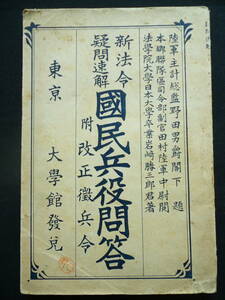 陸軍主計総監野田男爵閣下 題
本郷聯隊區司令部副官田村陸軍中尉閲
法學院大學日本大學卒業岩崎勝三郎君著
新法令
疑問速解
國民兵役問答
附改正徴兵令
東京 大學館發兌